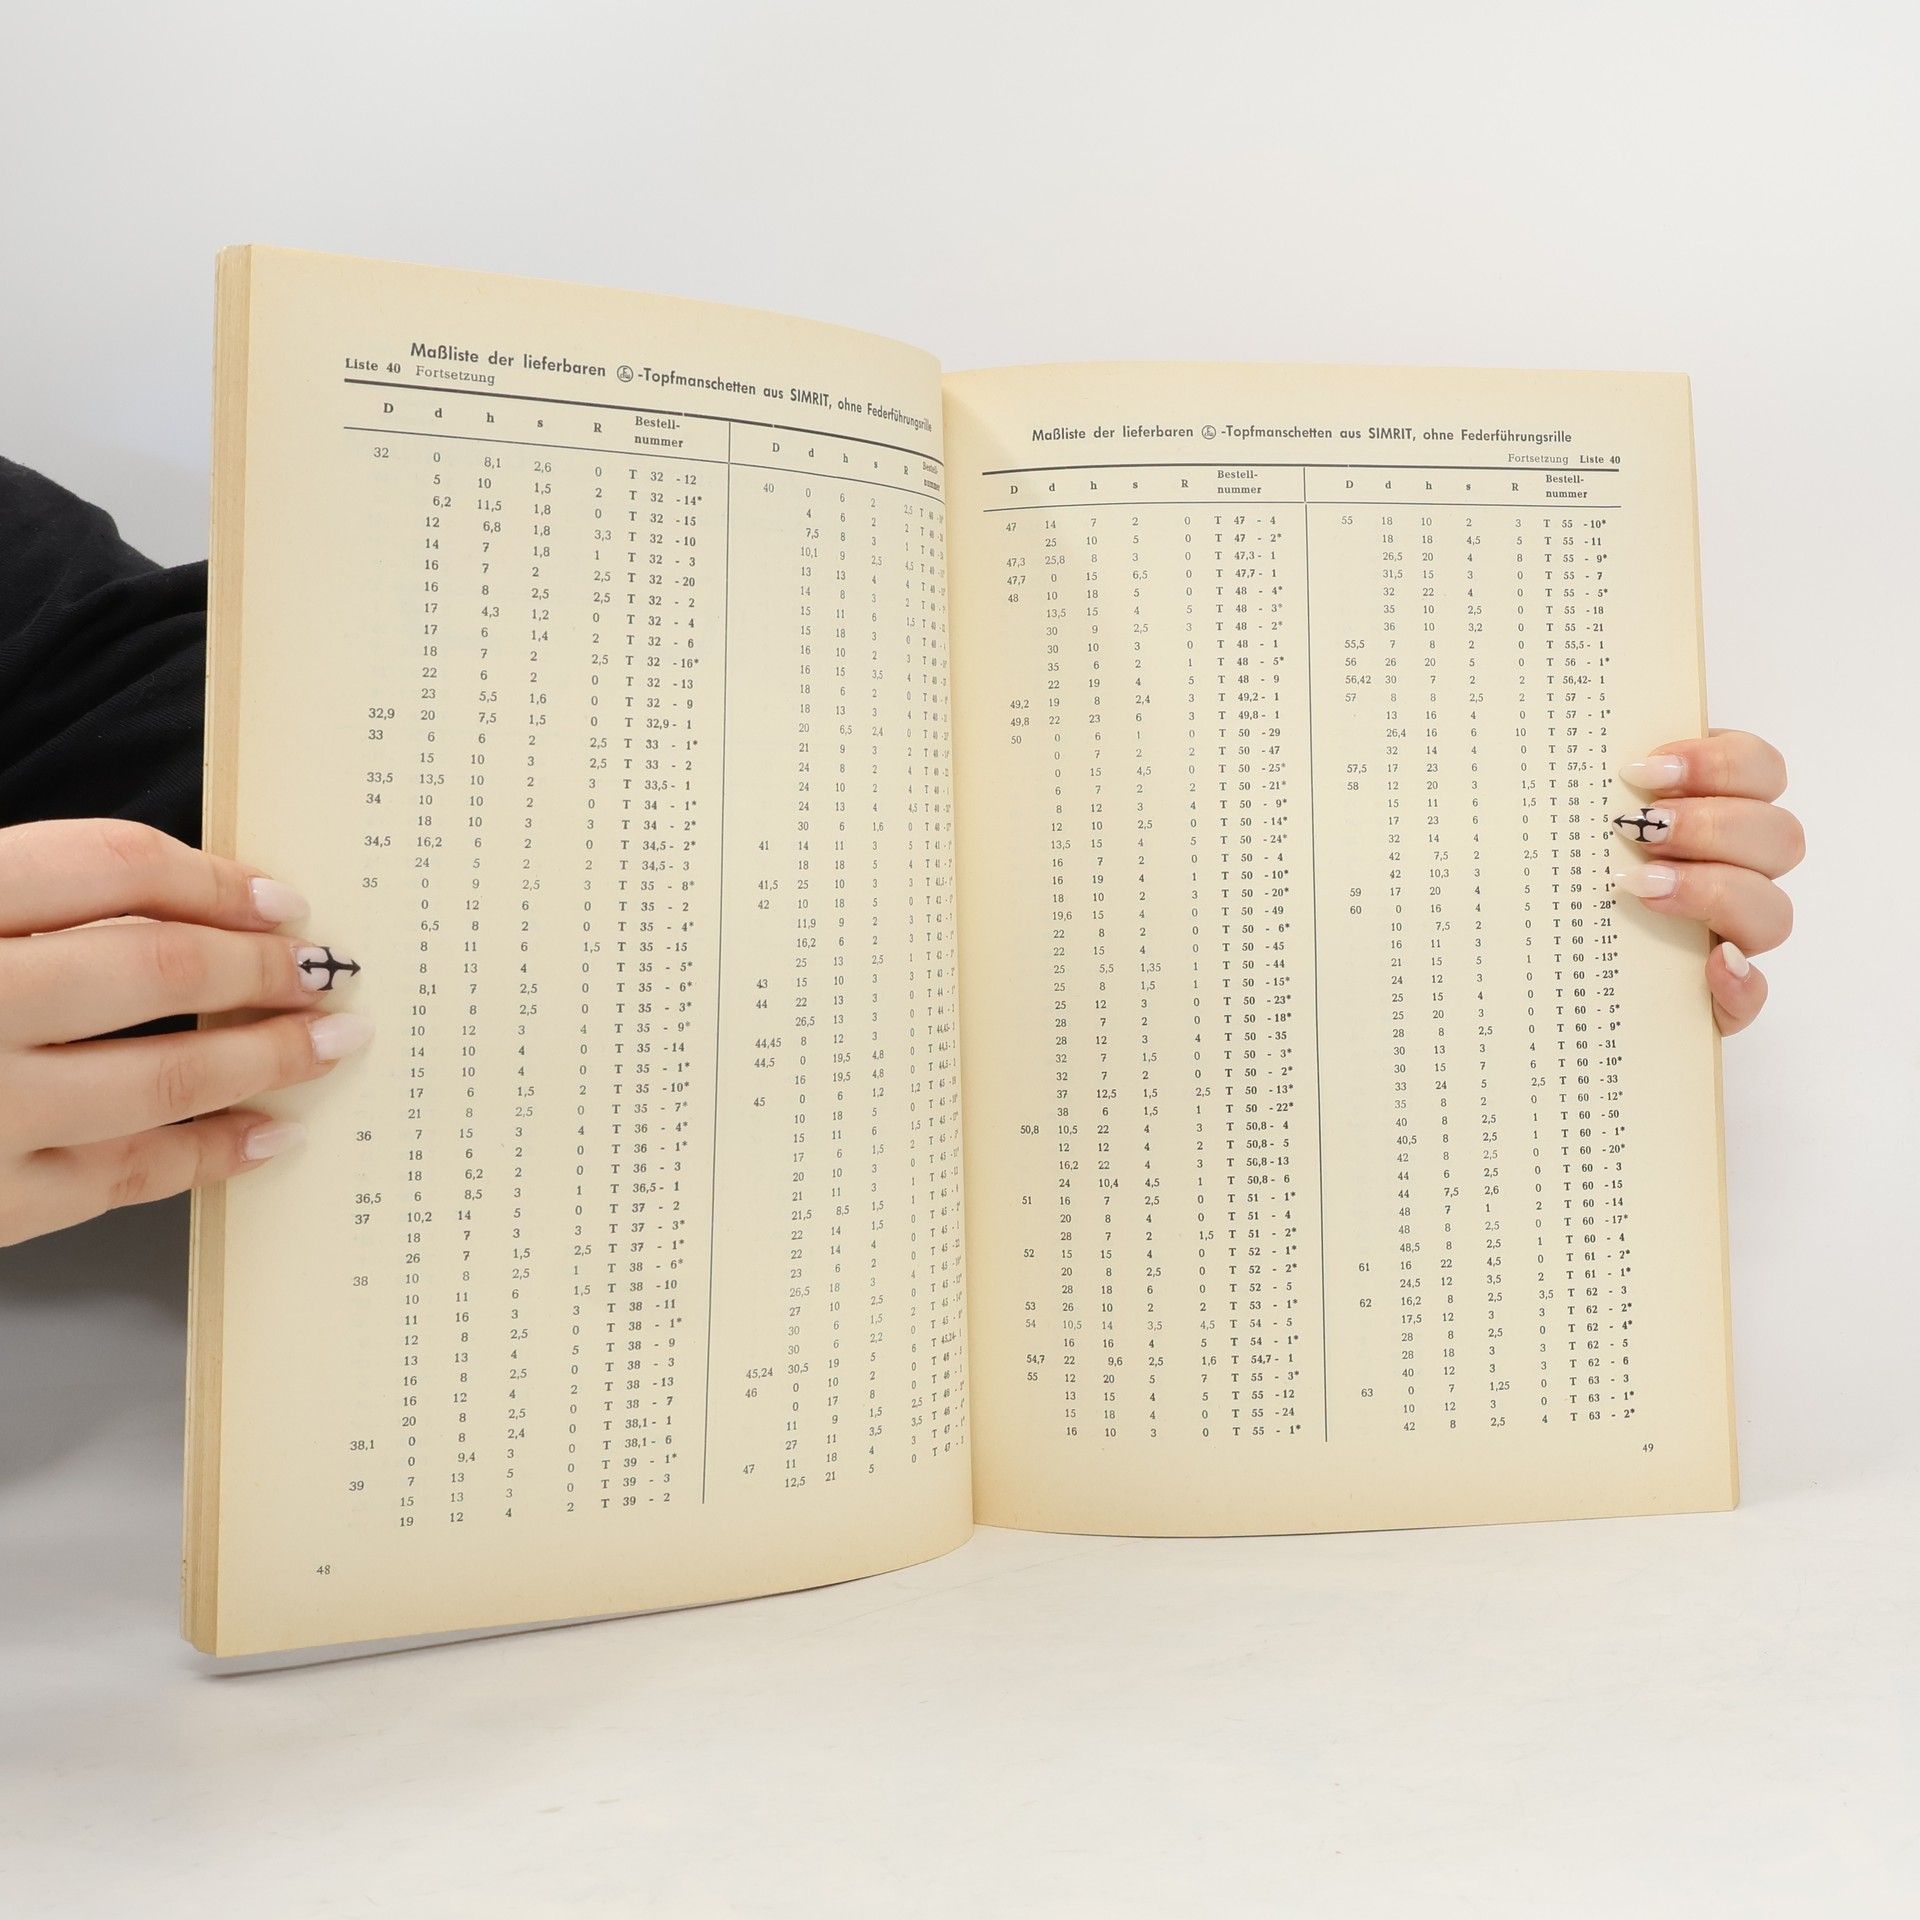 Maßliste der lieferbaren -Topfmanschetten aus SIMRIT, ohne Federführungsrille
Liste 40 Fortsetzung
D d h s R Bestell-
nummer
32 0 8,1 2,6 0 T 32 -12
5 10 1,5 2 T 32 -14*
6,2 11,5 1,8 0 T 32 -15
12 6,8 1,8 3,3 T 32 -10
14 7 1,8 1 T 32 - 3
16 7 2 2,5 T 32 -20
16 8 2,5 2,5 T 32 - 2
17 4,3 1,2 0 T 32 - 4
17 6 1,4 2 T 32 - 6
18 7 2 2,5 T 32 -16*
22 6 2 0 T 32 -13
23 5,5 1,6 0 T 32 - 9
32,9 20 7,5 1,5 0 T 32,9- 1
33 6 6 2 2,5 T 33 - 1*
15 10 3 2,5 T 33 - 2
33,5 13,5 10 2 3 T 33,5- 1
34 10 10 2 0 T 34 - 1*
18 10 3 3 T 34 - 2*
34,5 16,2 6 2 0 T 34,5- 2*
24 5 2 2 T 34,5- 3
35 0 9 2,5 3 T 35 - 8*
0 12 6 0 T 35 - 2
6,5 8 2 0 T 35 - 4*
8 11 6 1,5 T 35 -15
8 13 4 0 T 35 - 5*
8,1 7 2,5 0 T 35 - 6*
10 8 2,5 0 T 35 - 3*
10 12 3 4 T 35 - 9*
14 10 4 0 T 35 -14
15 10 4 0 T 35 - 1*
17 6 1,5 2 T 35 -10*
21 8 2,5 0 T 35 - 7*
36 7 15 3 4 T 36 - 4*
18 6 2 0 T 36 - 1*
18 6,2 2 0 T 36 - 3
36,5 6 8,5 3 1 T 36,5- 1
37 10,2 14 5 0 T 37 - 2
18 7 3 3 T 37 - 3*
26 7 1,5 2,5 T 37 - 1*
38 10 8 2,5 1 T 38 - 6*
10 11 6 1,5 T 38 -10
11 16 3 3 T 38 -11
12 8 2,5 0 T 38 - 1*
13 13 4 5 T 38 - 9
16 8 2,5 0 T 38 - 3
16 12 4 2 T 38 -13
20 8 2,5 0 T 38 - 7
38,1 0 8 2,4 0 T 38,1- 1
0 9,4 3 0 T 38,1- 6
39 7 13 5 0 T 39 - 1*
15 13 3 0 T 39 - 3
19 12 4 2 T 39 - 2
D d h s R Bestell-
nummer
40 0 6 2 2,5 T 40
4 6 2 2 T 40
7,5 8 3 1 T 40
10,1 9 2,5 4,5 T 40
13 13 4 4 T 40
14 8 3 2 T 40
15 11 6 1,5 T 40
15 18 3 0 T 40
16 10 2 3 T 40
16 15 3,5 4 T 40
18 6 2 0 T 40
18 13 3 4 T 40
20 6,5 2,4 0 T 40
21 9 3 2 T 40
24 8 2 4 T 40
24 10 2 4 T 40
24 13 4 4,5 T 40
30 6 1,6 0 T 40
41 14 11 3 5 T 41
18 18 5 4 T 41
41,5 25 10 3 3 T 41,5
42 10 18 5 0 T 42
11,9 9 2 3 T 42
16,2 6 2 3 T 42
25 13 2,5 1 T 42
43 15 10 3 3 T 43
44 22 13 3 3 T 44
26,5 13 3 0 T 44
44,45 8 12 3 0 T 44,45
44,5 0 19,5 4,8 0 T 44,5
16 19,5 4,8 0 T 44,5
45 0 6 1,2
10 18 5
15 11 6
17 6 1,5
20 10 3
21 11 3
21,5 8,5 1,5
22 14 1,5
22 14 4
23 6 2
26,5 18 3
27 10 2,5
30 6 1,5
30 6 2,2
45,24 30,5 19 5
46 0 10 2
0 17 8
11 9 1,5
27 11 3,5
47 11 18 4
12,5 21 5
48
Maßliste der lieferbaren -Topfmanschetten aus SIMRIT, ohne Federführungsrille
Fortsetzung Liste 40
D d h s R Bestell-
nummer
47 14 7 2 0 T 47 - 4
25 10 5 0 T 47 - 2*
47,3 25,8 8 3 0 T 47,3- 1
47,7 0 15 6,5 0 T 47,7- 1
48 10 18 5 0 T 48 - 4*
13,5 15 4 5 T 48 - 3*
30 9 2,5 3 T 48 - 2*
30 10 3 0 T 48 - 1
35 6 2 1 T 48 - 5*
22 19 4 5 T 48 - 9
49,2 19 8 2,4 3 T 49,2- 1
49,8 22 23 6 3 T 49,8- 1
50 0 6 1 0 T 50 -29
0 7 2 2 T 50 -47
0 15 4,5 0 T 50 -25*
6 7 2 2 T 50 -21*
8 12 3 4 T 50 - 9*
12 10 2,5 0 T 50 -14*
13,5 15 4 5 T 50 -24*
16 7 2 0 T 50 - 4
16 19 4 1 T 50 -10*
18 10 2 3 T 50 -20*
19,6 15 4 0 T 50 -49
22 8 2 0 T 50 - 6*
22 15 4 0 T 50 -45
25 5,5 1,35 1 T 50 -44
25 8 1,5 1 T 50 -15*
25 12 3 0 T 50 -23*
28 7 2 0 T 50 -18*
28 12 3 4 T 50 -35
32 7 1,5 0 T 50 - 3*
32 7 2 0 T 50 - 2*
37 12,5 1,5 2,5 T 50 -13*
38 6 1,5 1 T 50 -22*
50,8 10,5 22 4 3 T 50,8- 4
12 12 4 2 T 50,8- 5
16,2 22 4 3 T 50,8-13
24 10,4 4,5 1 T 50,8- 6
51 16 7 2,5 0 T 51 - 1*
20 8 4 0 T 51 - 4
28 7 2 1,5 T 51 - 2*
52 15 15 4 0 T 52 - 1*
20 8 2,5 0 T 52 - 2*
28 18 6 0 T 52 - 5
53 26 10 2 2 T 53 - 1*
54 10,5 14 3,5 4,5 T 54 - 5
16 16 4 5 T 54 - 1*
54,7 22 9,6 2,5 1,6 T 54,7- 1
55 12 20 5 7 T 55 - 3*
13 15 4 5 T 55 -12
15 18 4 0 T 55 -24
16 10 3 0 T 55 - 1*
D d h s R Bestell-
nummer
55 18 10 2 3 T 55 -10*
18 18 4,5 5 T 55 -11
26,5 20 4 8 T 55 - 9*
31,5 15 3 0 T 55 - 7
32 22 4 0 T 55 - 5*
35 10 2,5 0 T 55 -18
36 10 3,2 0 T 55 -21
55,5 7 8 2 0 T 55,5- 1
56 26 20 5 0 T 56 - 1*
56,42 30 7 2 2 T 56,42- 1
57 8 8 2,5 2 T 57 - 5
13 16 4 0 T 57 - 1*
26,4 16 6 10 T 57 - 2
32 14 4 0 T 57 - 3
57,5 17 23 6 0 T 57,5- 1
58 12 20 3 1,5 T 58 - 1*
15 11 6 1,5 T 58 - 7
17 23 6 0 T 58 - 5
32 14 4 0 T 58 - 6*
42 7,5 2 2,5 T 58 - 3
42 10,3 3 0 T 58 - 4
59 17 20 4 5 T 59 - 1*
60 0 16 4 5 T 60 -28*
10 7,5 2 0 T 60 -21
16 11 3 5 T 60 -11*
21 15 5 1 T 60 -13*
24 12 3 0 T 60 -23*
25 15 4 0 T 60 -22
25 20 3 0 T 60 - 5*
28 8 2,5 0 T 60 - 9*
30 13 3 4 T 60 -31
30 15 7 6 T 60 -10*
33 24 5 2,5 T 60 -33
35 8 2 0 T 60 -12*
40 8 2,5 1 T 60 -50
40,5 8 2,5 1 T 60 - 1*
42 8 2,5 0 T 60 -20*
44 6 2,5 0 T 60 - 3
44 7,5 2,6 0 T 60 -15
48 7 1 2 T 60 -14
48 8 2,5 0 T 60 -17*
48,5 8 2,5 1 T 60 - 4
61 16 22 4,5 0 T 61 - 2*
24,5 12 3,5 2 T 61 - 1*
62 16,2 8 2,5 3,5 T 62 - 3
17,5 12 3 3 T 62 - 2*
28 8 2,5 0 T 62 - 4*
28 18 3 3 T 62 - 5
40 12 3 3 T 62 - 6
63 0 7 1,25 0 T 63 - 3
10 12 3 0 T 63 - 1*
42 8 2,5 4 T 63 - 2*
49